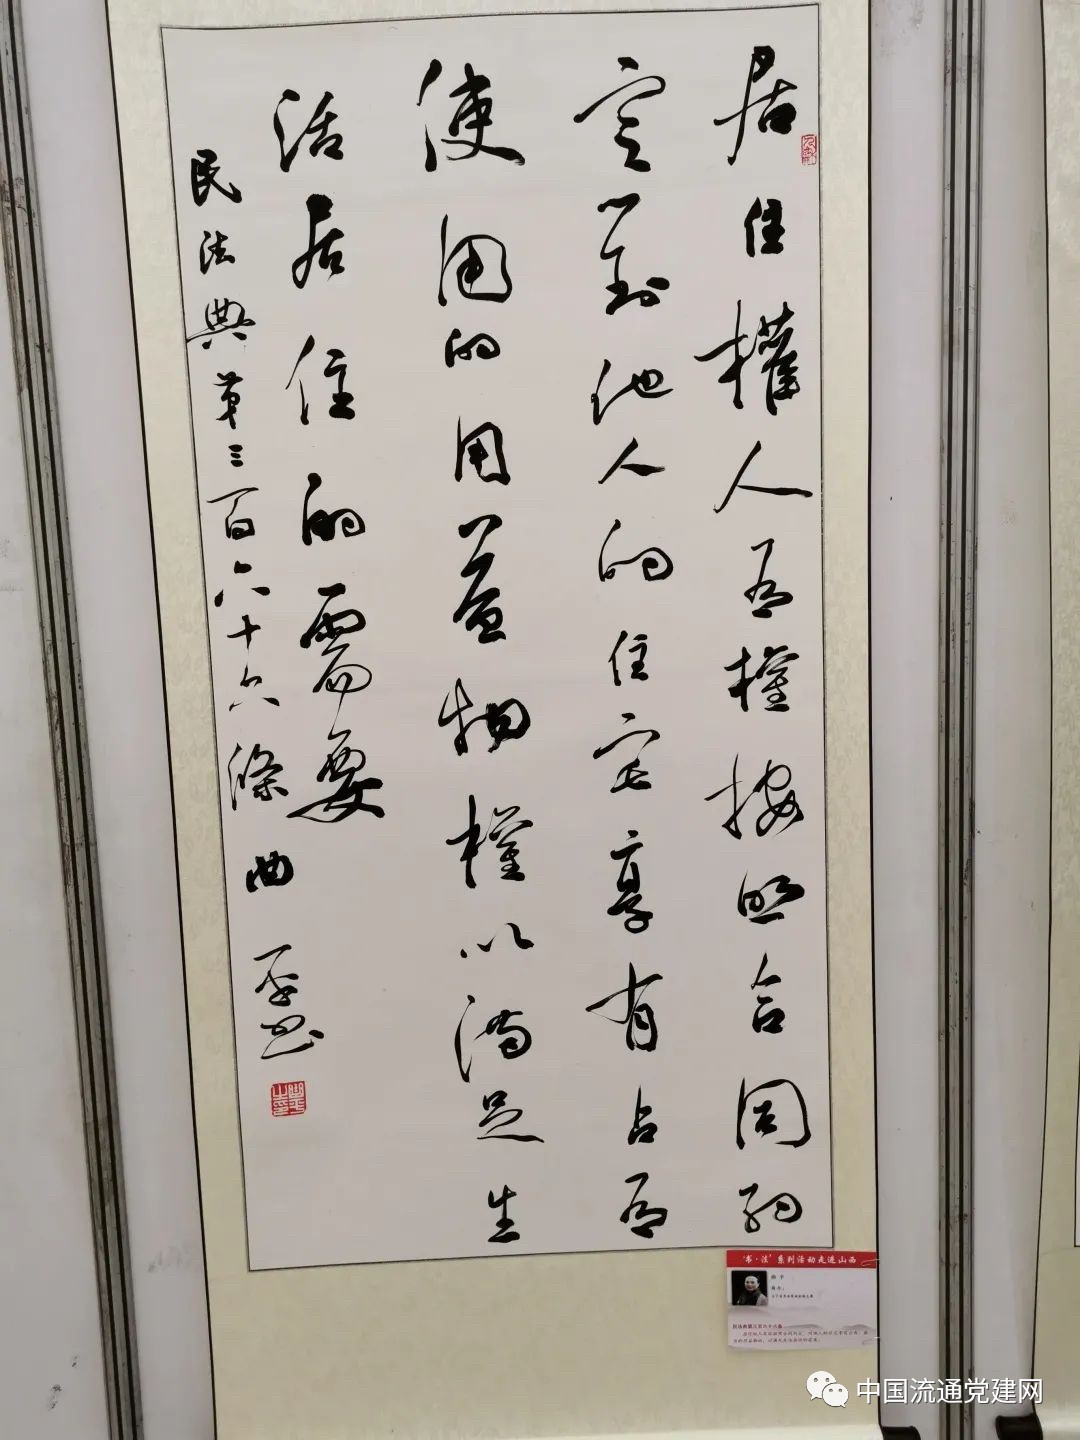 居住權人有權按照合同約
定對他人的住宅享有占有
使用的用益物權以滿足生
活居住的需要
民法典第三百六十六條 曲 平書
'书·法'系列活动走进山西
中国流通党建网